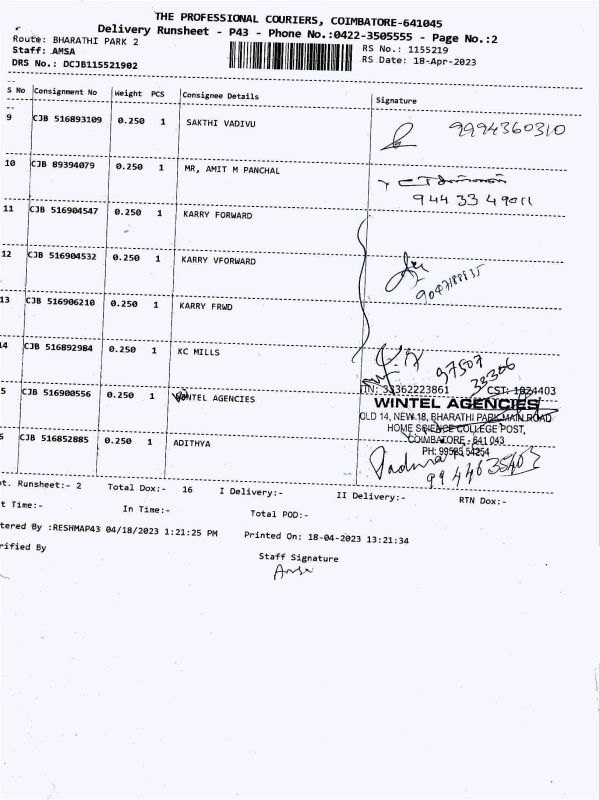 THE PROFESSIONAL COURIERS, COIMBATORE-641045
Delivery Runsheet - P43 - Phone No.:0422-3505555 - Page No.:2
Route: BHARATHI PARK 2
RS No.: 1155219
Staff: AMSA
RS Date: 18-Apr-2023
DRS No.: DCJB115521902
S No Consignment No Weight PCS Consignee Details Signature
9 CJB 516893109 0.250 1 SAKTHI VADIVU 9994360310
10 CJB 89394079 0.250 1 MR, AMIT M PANCHAL
944 33 49011
11 CJB 516904547 0.250 1 KARRY FORWARD
12 CJB 516904532 0.250 1 KARRY VFORWARD
13 CJB 516906210 0.250 1 KARRY FRWD
14 CJB 516892984 0.250 1 KC MILLS
97507
5 CJB 516900556 0.250 1 WINTEL AGENCIES
33362223861 CST: 1024403
WINTEL AGENCIES
OLD 14, NEW.18, BHARATHI PARK MAIN ROAD
HOME SCIENCE COLLEGE POST,
COIMBATORE - 641 043
PH: 99525 54254
6 CJB 516852885 0.250 1 ADITHYA
Padma
ot. Runsheet:- 2 Total Dox:- 16 I Delivery:- II Delivery:- RTN Dox:-
t Time:- In Time:- Total POD:-
tered By :RESHMAP43 04/18/2023 1:21:25 PM Printed On: 18-04-2023 13:21:34
rified By
Staff Signature
Amsa